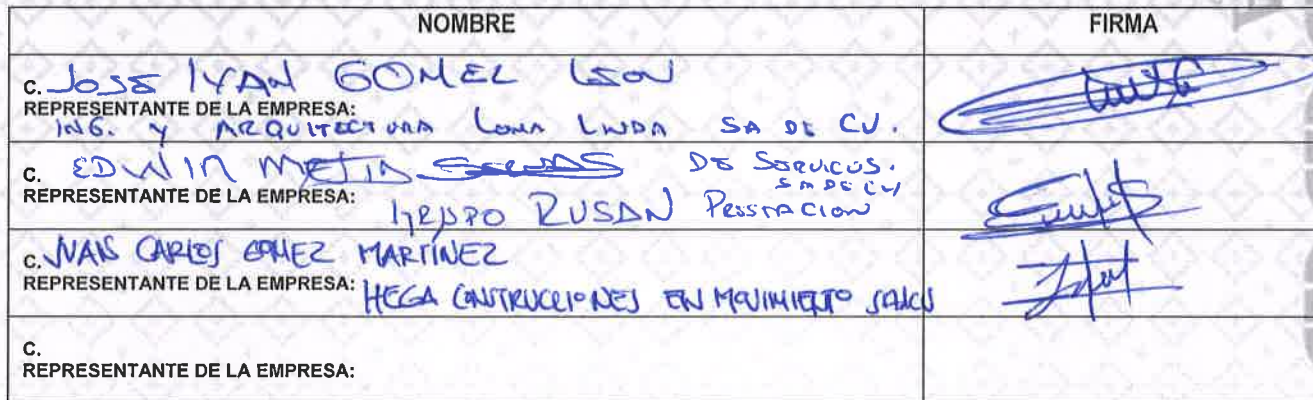 NOMBRE FIRMA
C. JOSE IVAN GOMEZ LEON
REPRESENTANTE DE LA EMPRESA:
ING. Y ARQUITECTURA LOMA LINDA SA DE CV.
C. EDWIN MEJIA DE SERVICIOS.
SA DE CV
REPRESENTANTE DE LA EMPRESA:
GRUPO RUSAN PRESTACION
C. JUAN CARLOS GOMEZ MARTINEZ
REPRESENTANTE DE LA EMPRESA: HEGA CONSTRUCCIONES EN MOVIMIENTO SADECV
C.
REPRESENTANTE DE LA EMPRESA: